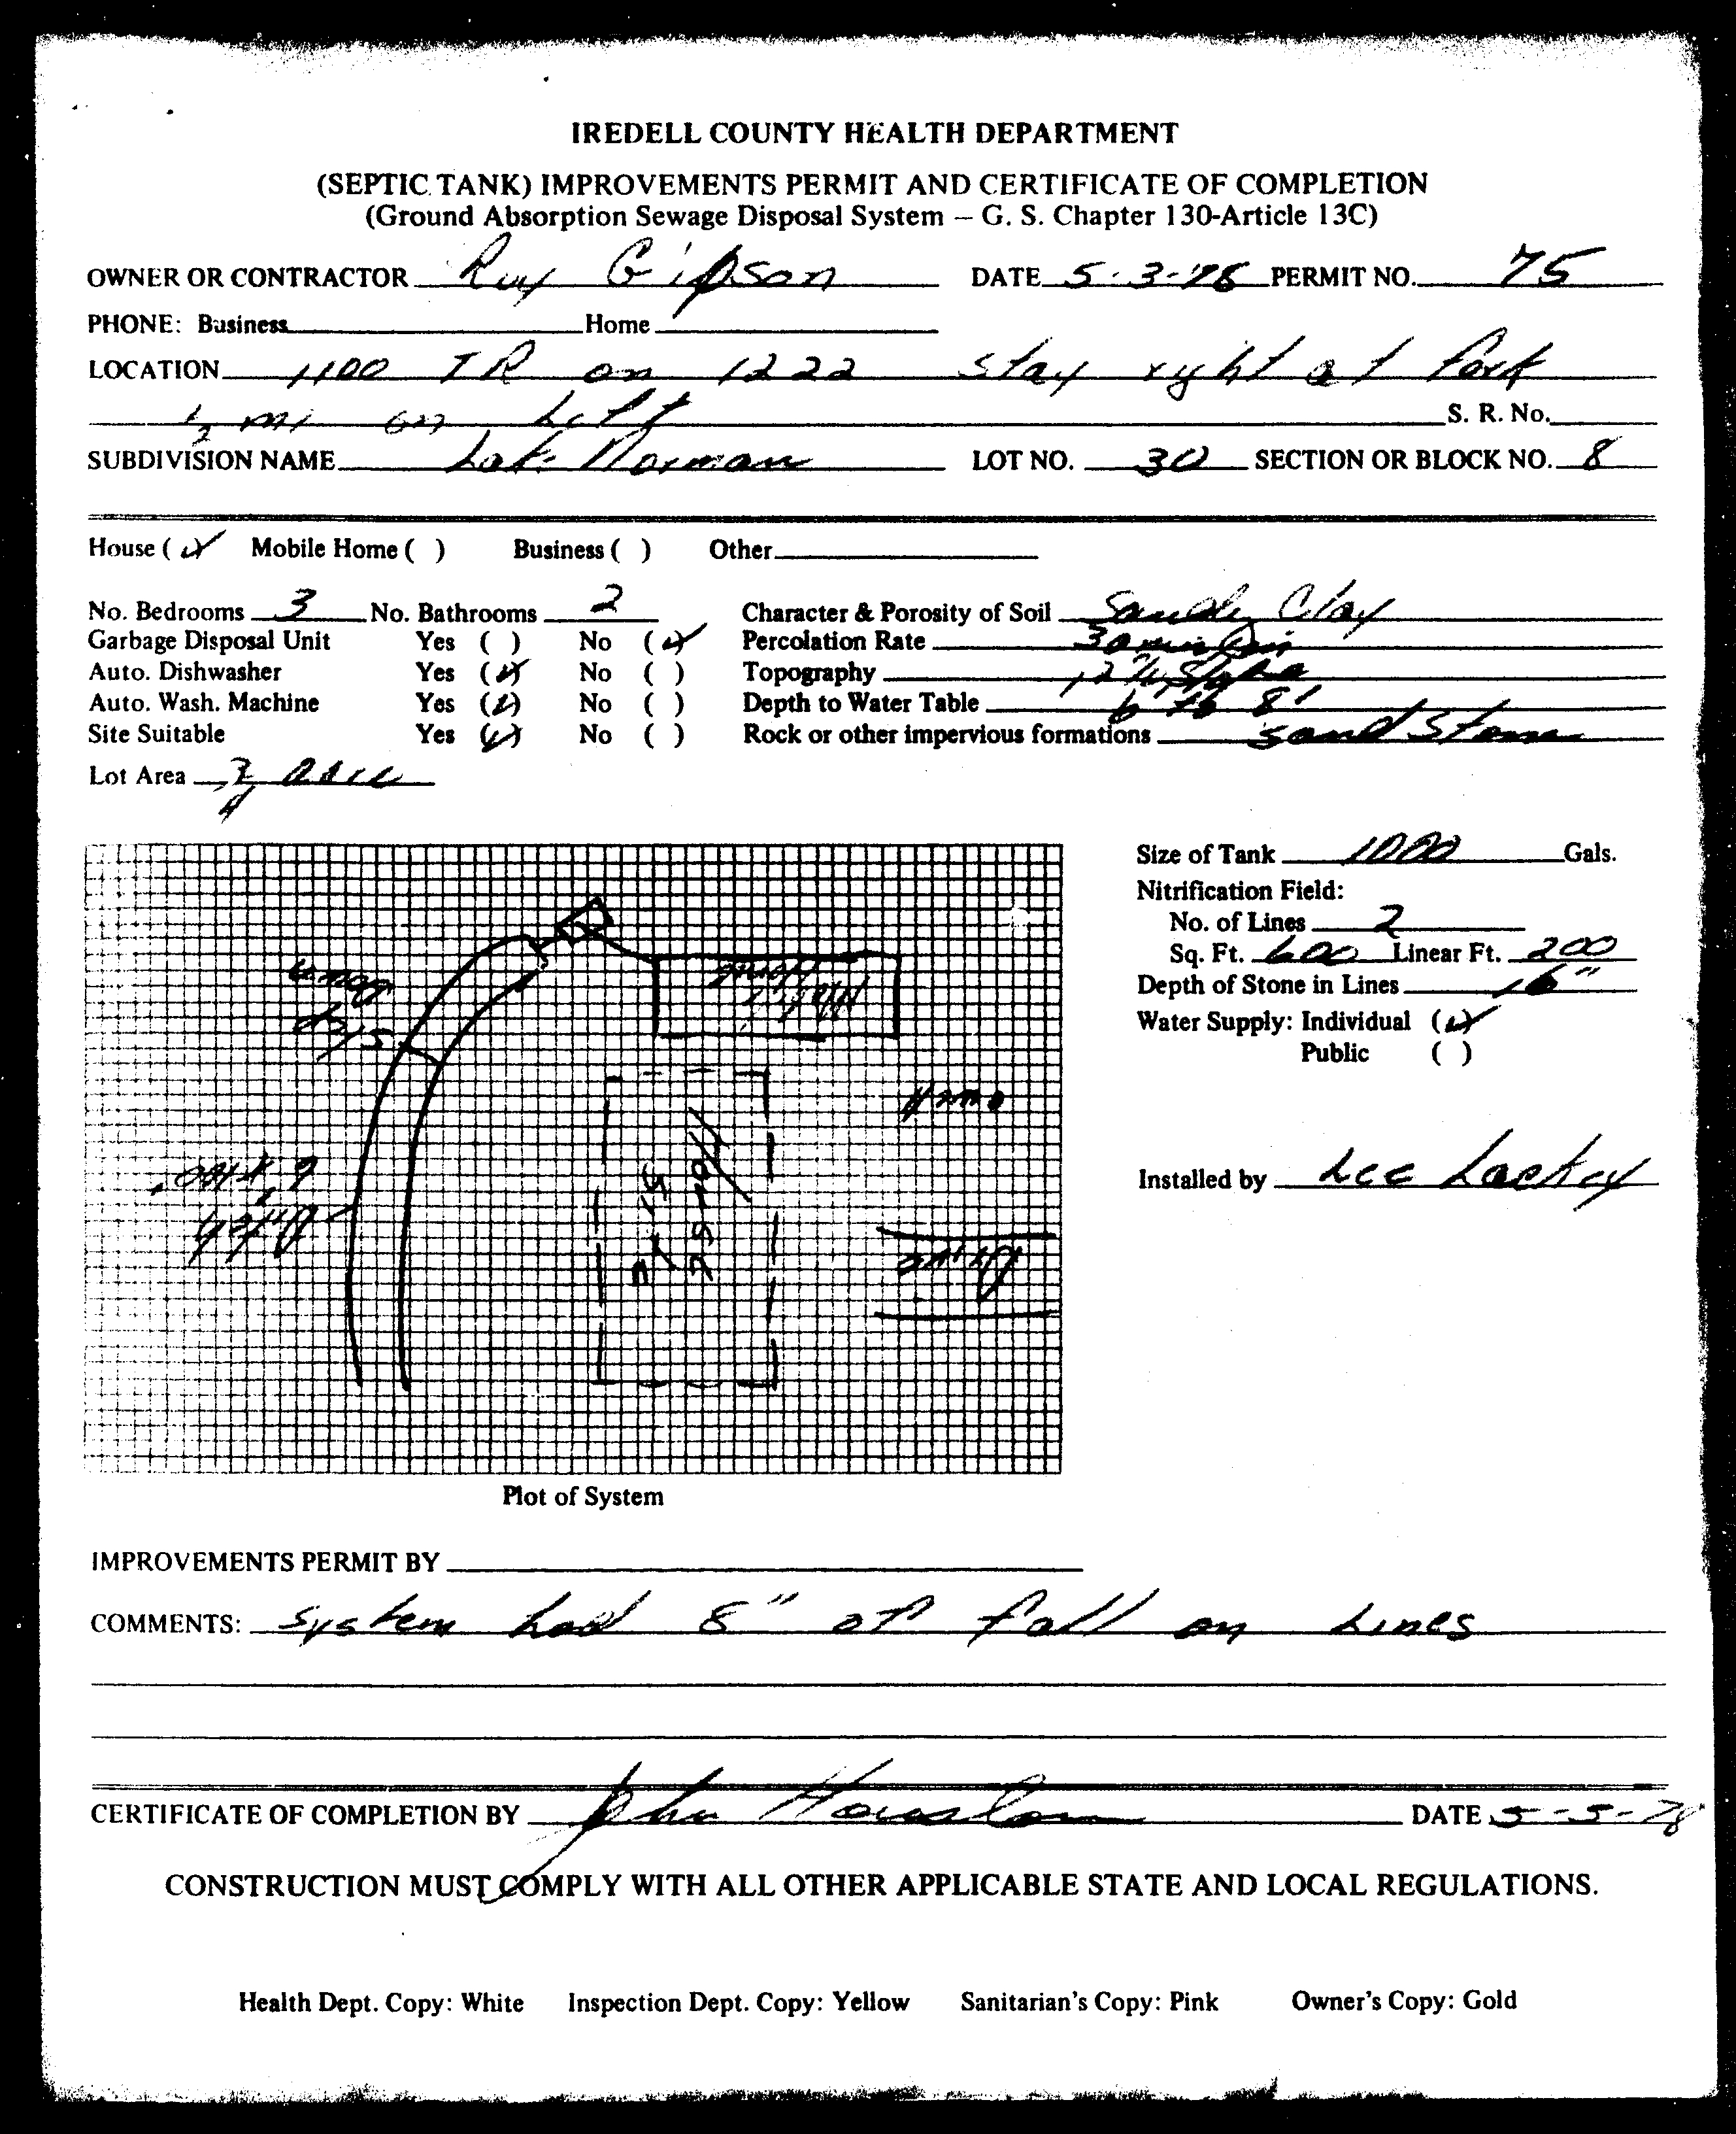 IREDELL COUNTY HEALTH DEPARTMENT
(SEPTIC TANK) IMPROVEMENTS PERMIT AND CERTIFICATE OF COMPLETION
(Ground Absorption Sewage Disposal System – G. S. Chapter 130-Article 13C)
OWNER OR CONTRACTOR Ray Gipson DATE 5-3-78 PERMIT NO. 75
PHONE: Business Home
LOCATION 1100 TR on 1222 stay right at fork
1/2 mi on Left S. R. No.
SUBDIVISION NAME Lake Norman LOT NO. 30 SECTION OR BLOCK NO. 8
House (✓) Mobile Home ( ) Business ( ) Other
No. Bedrooms 3 No. Bathrooms 2 Character & Porosity of Soil Sandy Clay
Garbage Disposal Unit Yes ( ) No (✓) Percolation Rate 30 min/in
Auto. Dishwasher Yes (✓) No ( ) Topography 12% Slope
Auto. Wash. Machine Yes (✓) No ( ) Depth to Water Table 6 to 8'
Site Suitable Yes (✓) No ( ) Rock or other impervious formations sand Stone
Lot Area 3/4 acre
Size of Tank 1000 Gals.
Nitrification Field:
No. of Lines 2
Sq. Ft. 600 Linear Ft. 200
Depth of Stone in Lines 16"
Water Supply: Individual (✓)
Public ( )
Installed by Lee Lackey
Step
Down
Mobile
Home
6' x 100'
Ditch
House
Site
Drive
Plot of System
IMPROVEMENTS PERMIT BY
COMMENTS: System had 8" of fall on Lines
CERTIFICATE OF COMPLETION BY John Houston DATE 5-5-78
CONSTRUCTION MUST COMPLY WITH ALL OTHER APPLICABLE STATE AND LOCAL REGULATIONS.
Health Dept. Copy: White Inspection Dept. Copy: Yellow Sanitarian's Copy: Pink Owner's Copy: Gold